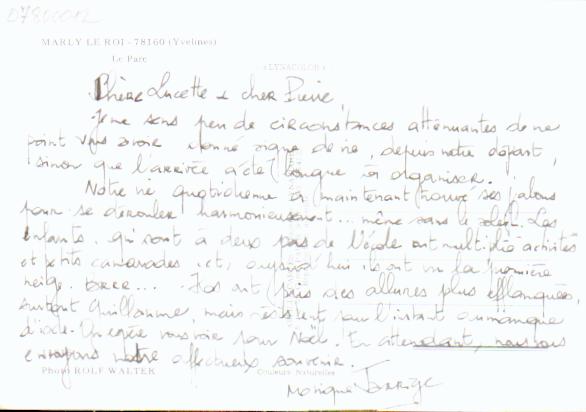 D7800012
MARLY LE ROI - 78160 (Yvelines)
Le Parc
«LYNACOLOR»
Chère Lucette & cher Pierre,
Je me sens peu de circonstances atténuantes de ne
point vous avoir donné signe de vie, depuis notre départ,
sinon que l'arrivée a été longue à organiser.
Notre vie quotidienne a maintenant trouvé ses jalons
pour se dérouler harmonieusement... même sans le soleil. Les
enfants, qui sont à deux pas de l'école ont multiplié activités
et petits camarades et, aujourd'hui ils ont vu la première
neige. brrr... ont pris des allures plus efflanquées,
surtout Guillaume, mais résistent pour l'instant au manque
d'iode. On espère vous voir pour Noël. En attendant, nous vous
envoyons notre affectueux souvenir.
Photo ROLF WALTER
Couleurs Naturelles
Monique